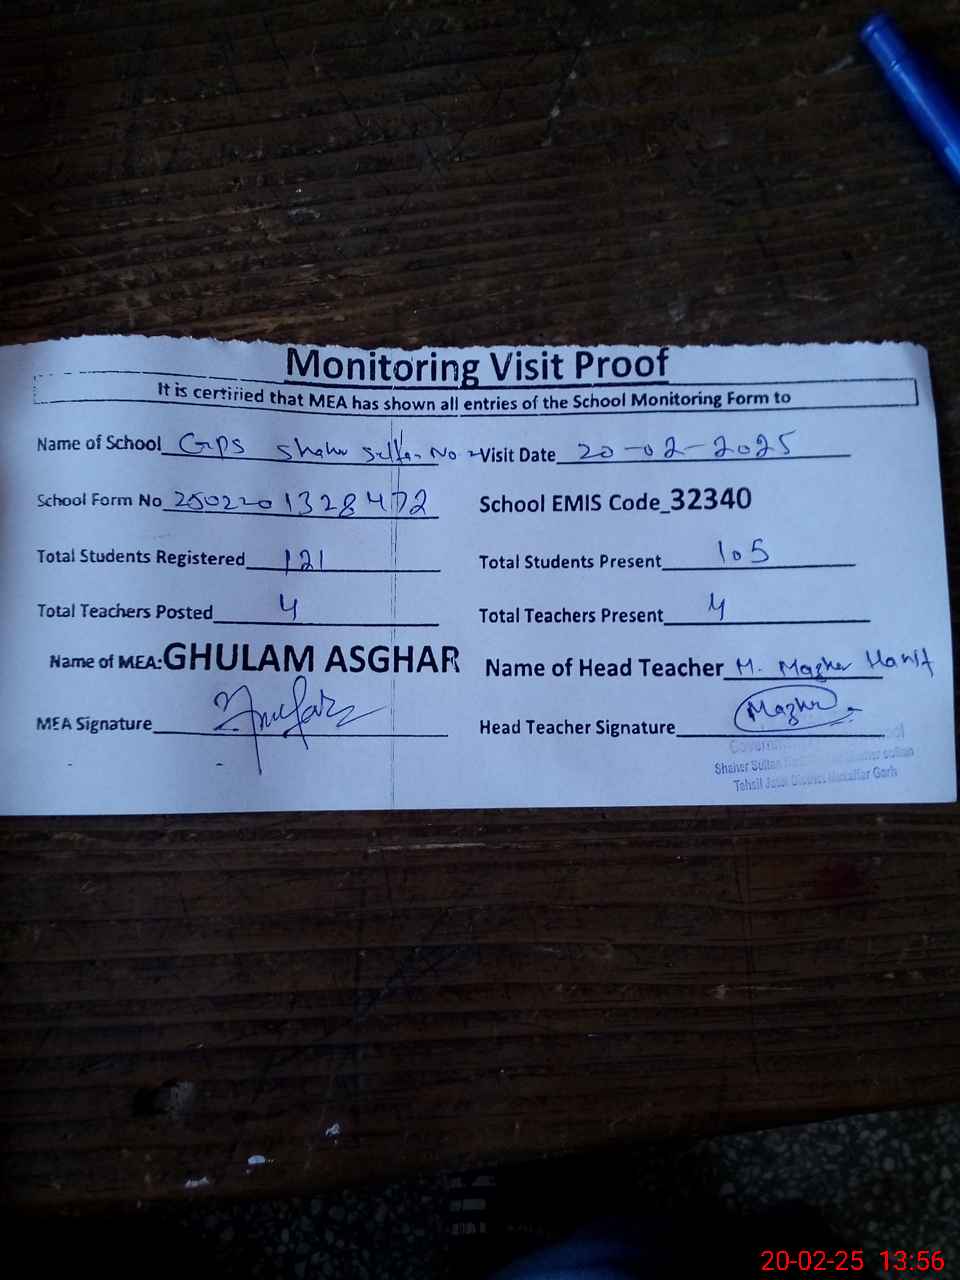 Monitoring Visit Proof
It is certified that MEA has shown all entries of the School Monitoring Form to
Name of School GPS Shaher Sultan No 2 Visit Date 20-02-2025
School Form No 2502201328472 School EMIS Code_32340
Total Students Registered 121 Total Students Present 105
Total Teachers Posted 4 Total Teachers Present 4
Name of MEA: GHULAM ASGHAR Name of Head Teacher M. Mazher Hanif
MEA Signature Head Teacher Signature Mazhr
Shaher Sultan
Tehsil Jatoi District Muzaffar Garh
20-02-25 13:56